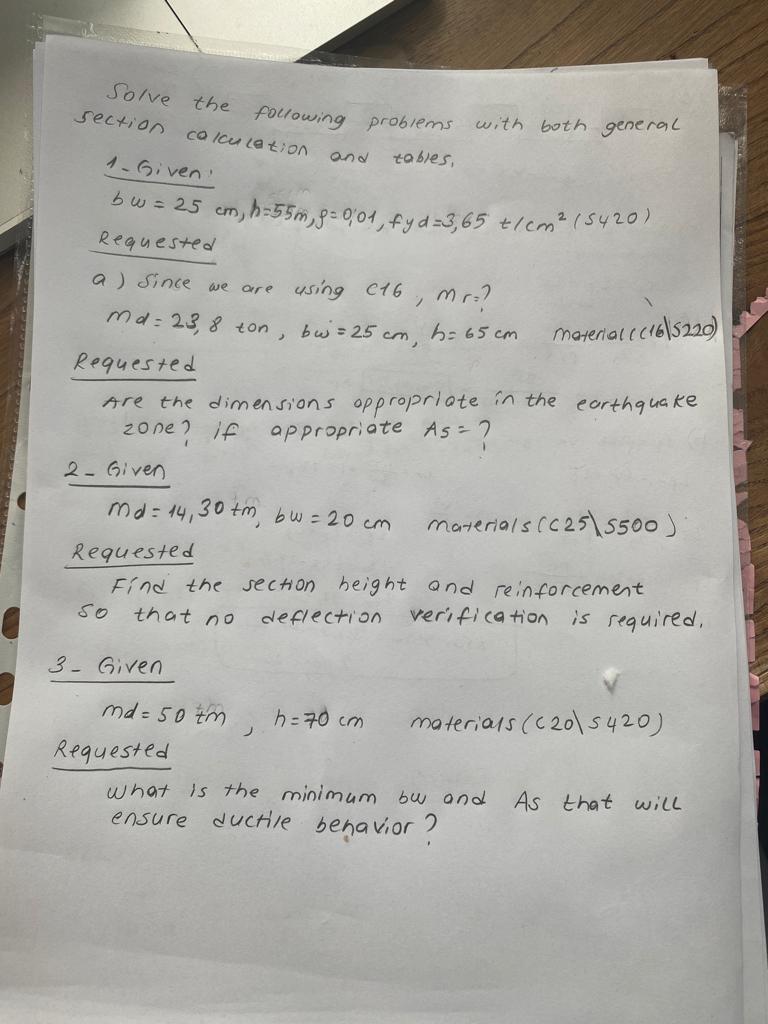 Solve the following problems with both general
section calculation and tables,
1-Given:
bw = 25 cm, h=55m, ρ=0,01, fyd=3,65 t/cm² (S420)
Requested
a) Since we are using C16, Mr=?
Md = 23,8 ton, bw = 25 cm, h= 65 cm material (C16\S220)
Requested
Are the dimensions appropriate in the earthquake
zone? if appropriate As = ?
2- Given
Md = 14,30 tm, bw = 20 cm materials (C25\S500)
Requested
Find the section height and reinforcement
so that no deflection verification is required.
3- Given
md = 50 tm, h = 70 cm materials (C20\S420)
Requested
What is the minimum bw and As that will
ensure ductile behavior?